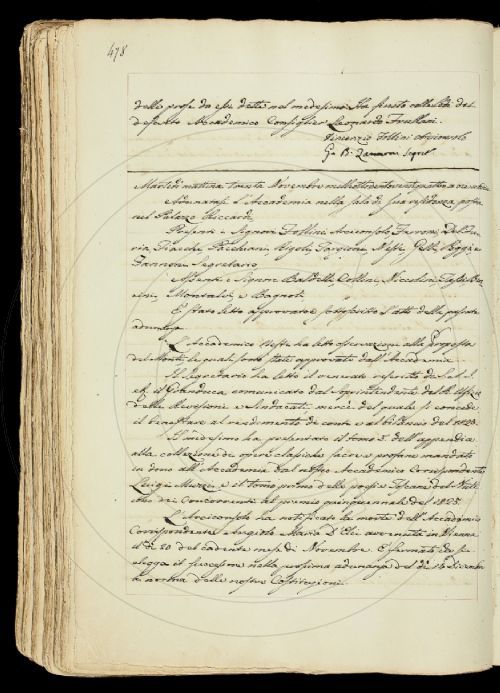 478
delle prose da esso dette nel medesimo. Ha finito colle lodi del
defunto Accademico Consiglier Leonardo Frullani.
Vincenzio Follini Arciconsolo
G. B. Zannoni Segret.
Martedì mattina trenta Novembre milleottocentoventiquattro a ore
Adunatasi l'Accademia nella sala di sua residenza posta
nel Palazzo Riccardi
Presenti i Signori Follini Arciconsolo, Ferroni, Del Fu-
ria, Fiacchi, Rigoli, Targioni, Nesti, Poggi e
Zannoni Segretario
Assenti i Signori Baldelli, Collini, Niccolini,
Montalvi, e Bagnoli
È stato letto approvato e sottoscritto l'atto della passata
adunanza.
L'Accademico Nesti ha letto osservazioni alla Proposta
del Monti, le quali sono state approvate dall'Accademia
Il Segretario ha letto il venerato rescritto di S. A. I.
e R. il Granduca, comunicato dal Soprintendente del R. Ufizio
delle Revisioni e Sindacati, mercè del quale si concede
il benestare al rendimento de conti e al bilancio del 1823.
Il medesimo ha presentato il tomo 3. dell'appendice
alla collezione di opere classiche sacre e profane mandato
in dono all'Accademia dal nostro Accademico Corrispondente
Luigi Muzzi, e il tomo primo delle poesie
dei Concorrenti al premio quinquennale del 1825.
L'Arciconsolo ha notificata la morte dell'Accademico
Corrispondente Angiolo Maria D'Elci avvenuta in Vienna
il dì 20 del cadente mese di Novembre. È fermato che si
elegga il successore nella prossima adunanza del dì 14 Dicembre
a norma delle nostre Costituzioni.